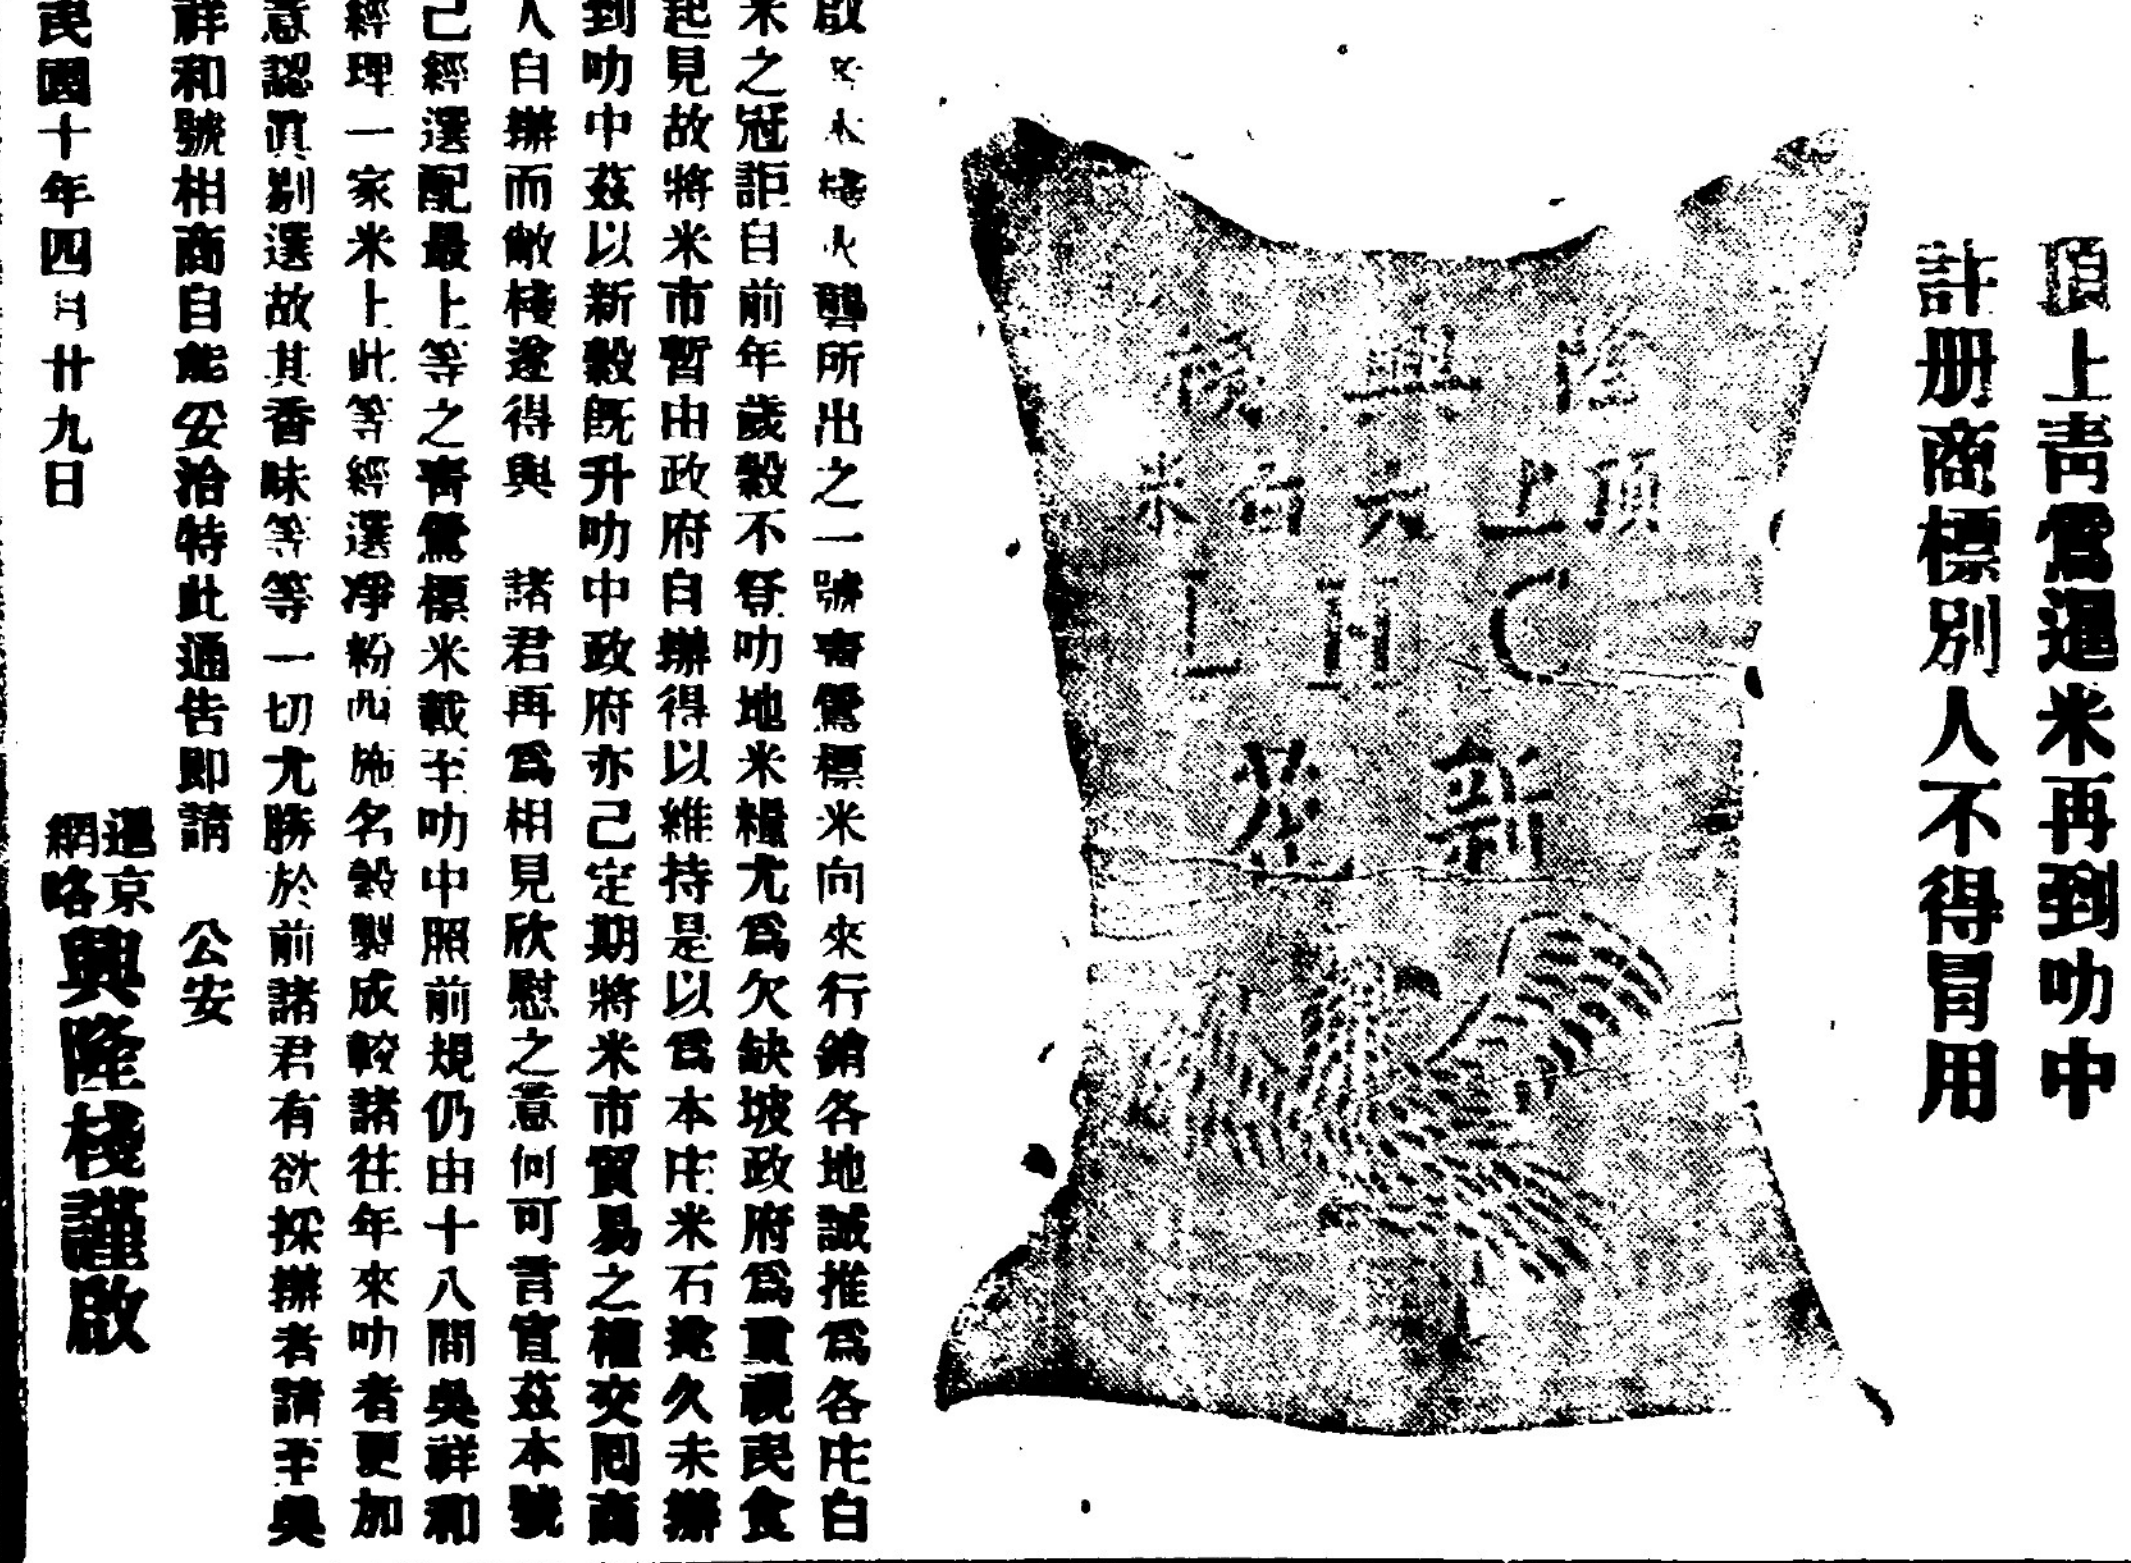 頂上青鶯暹米再到叻中
註册商標別人不得冒用
隆興棧
頂上六舂米
L H C
新造
啟 米棧火礱所出之一號青鶯標米向來行銷各地誠推為各庄白
米之冠詎自前年歲穀不登叻地米糧尤為欠缺坡政府為重視民食
起見故將米市暫由政府自辦得以維持是以為本庄米石遂久未辦
到叻中茲以新穀既升叻中政府亦己定期將米市貿易之權交囘商
人自辦而敝棧遂得與 諸君再為相見欣慰之意何可言宣茲本號
己經選配最上等之青鶯標米載至叻中照前規仍由十八間吳祥和
經理一家米上此等經選淨粉 施名穀製成較諸往年來叻者更加
意認眞剔選故其香味等等一切尤勝於前諸君有欲採辦者請至吳
祥和號相商自能妥洽特此通告即請 公安
民國十年四月廿九日
暹京網咯興隆棧謹啟